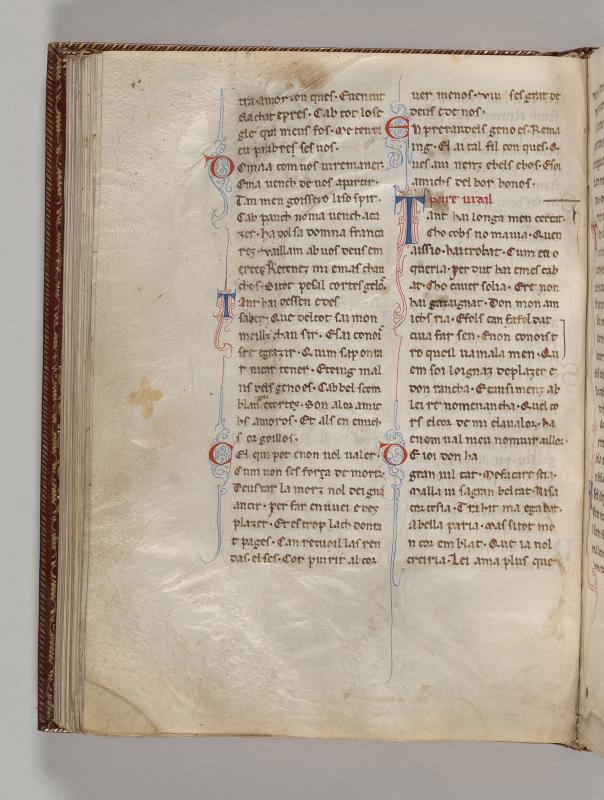 tra amor con ques. Euencut
da chat e pres. Cab tot lost
gle qui meus fos. Me tenri
eu paubres ses uos.
Domna com uos uiremaner
Ema uench de uos aparur.
Tam men goisser o laso spir.
Cab pauch noma uench aci
zer. ha dolsa domna franca
rez. uaillam ab uos deus em
Retenez mi em as chan
chos. Sitot pesal cortes gelos.
Tant hai dessen e des
saber. Que del tot sai mon
meillz chau sir. Esai conois
sre e grazir. Quim sap onra
r ni car tener. Eteing mal
us dels genoes. Cab bel sem
blan e cortez. Son a lor amic
hs amoros. Et als enemich
s er goillos.
Cel qui pot e non uol ualer.
Cum non ses forza de morir.
Deus car la morz nol deigna
aucir. per far enuuei e dez
plazer. Et es trop lach donra
t pages. Can recuoil las ren
das el ses. Cor puirit ab cor
uer menos. uiu ses grat de
deus e de nos.
En prerauidels genoes. Rema
ing. El ai tal fil con ques. Q
ues aui nenz e bels e bos. Esoi
amichs del bor bonos.
Peire uidal
Tant hai longa men cercat.
Cho cobs no mauia. Quen
aissio. hai trobat. Cum eu o
queria. per dut hai e mes cab
at. Cho cauer solia. Ere non
hai gazaignat. Don mon am
ichs ria. Efols can fa fol dat
cuia far sen. Enon conois t
ro queil ua mala men. Qu
em soi loignaz de plazer e
don rancha. E e uisi menz ab
lei re nomenancha. Quel co
rs el cor de mi el aualor. ha
e nom ual meu nom uir aillor.
De ioi don ha
gran uil tat. Mesa care sta.
Mailla ui sa gran beltat. Ni sa
cortesia. Tra hit ma e gabat.
A bella patria. Mas si tot mo
n cor em blat. Que ia nol
creiria. Lei ama plus que